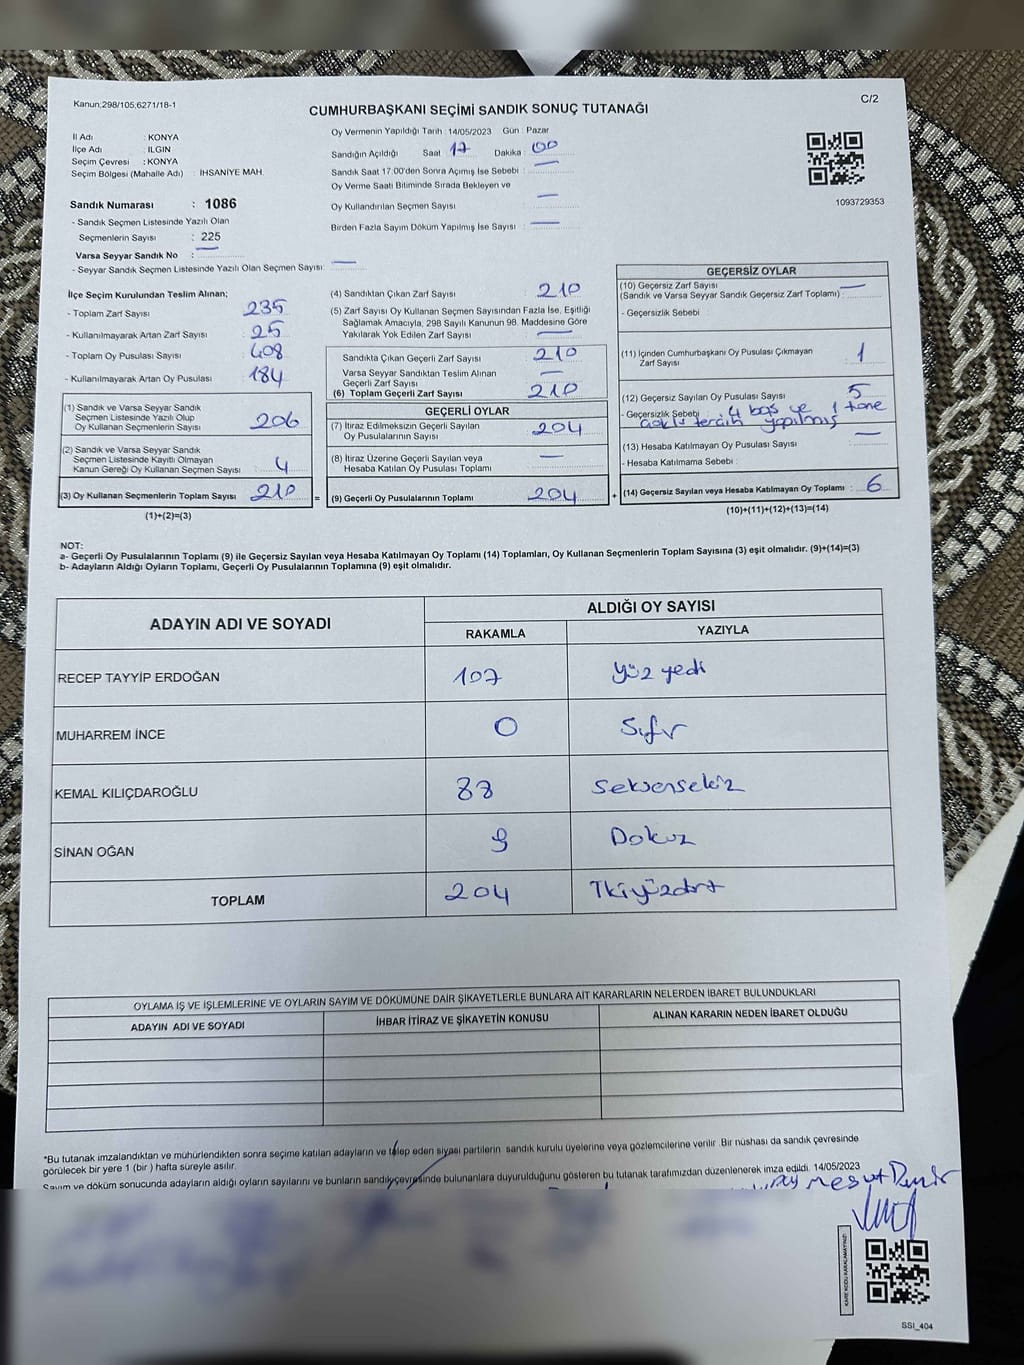 Kanun:298/105,6271/18-1
C/2
CUMHURBAŞKANI SEÇİMİ SANDIK SONUÇ TUTANAĞI
İl Adı : KONYA
İlçe Adı : ILGIN
Seçim Çevresi : KONYA
Seçim Bölgesi (Mahalle Adı) : İHSANİYE MAH.
Sandık Numarası : 1086
- Sandık Seçmen Listesinde Yazılı Olan
Seçmenlerin Sayısı : 225
Varsa Seyyar Sandık No :
- Seyyar Sandık Seçmen Listesinde Yazılı Olan Seçmen Sayısı:
Oy Vermenin Yapıldığı Tarih : 14/05/2023 Gün : Pazar
Sandığın Açıldığı Saat 17 Dakika 00
Sandık Saat 17:00'den Sonra Açımış İse Sebebi :
Oy Verme Saati Bitiminde Sırada Bekleyen ve
Oy Kullandırılan Seçmen Sayısı
Birden Fazla Sayım Döküm Yapılmış İse Sayısı :
1093729353
İlçe Seçim Kurulundan Teslim Alınan;
- Toplam Zarf Sayısı : 235
- Kullanılmayarak Artan Zarf Sayısı : 25
- Toplam Oy Pusulası Sayısı : 408
- Kullanılmayarak Artan Oy Pusulası : 184
(1) Sandık ve Varsa Seyyar Sandık
Seçmen Listesinde Yazılı Olup
Oy Kullanan Seçmenlerin Sayısı : 206
(2) Sandık ve Varsa Seyyar Sandık
Seçmen Listesinde Kayıtlı Olmayan
Kanun Gereği Oy Kullanan Seçmen Sayısı : 4
(3) Oy Kullanan Seçmenlerin Toplam Sayısı : 210 =
(1)+(2)=(3)
(4) Sandıktan Çıkan Zarf Sayısı : 210
(5) Zarf Sayısı Oy Kullanan Seçmen Sayısından Fazla İse, Eşitliği
Sağlamak Amacıyla, 298 Sayılı Kanunun 98. Maddesine Göre
Yakılarak Yok Edilen Zarf Sayısı :
Sandıkta Çıkan Geçerli Zarf Sayısı : 210
Varsa Seyyar Sandıktan Teslim Alınan
Geçerli Zarf Sayısı :
(6) Toplam Geçerli Zarf Sayısı : 210
GEÇERLİ OYLAR
(7) İtiraz Edilmeksizin Geçerli Sayılan
Oy Pusulalarının Sayısı : 204
(8) İtiraz Üzerine Geçerli Sayılan veya
Hesaba Katılan Oy Pusulası Toplamı :
(9) Geçerli Oy Pusulalarının Toplamı : 204 +
GEÇERSİZ OYLAR
(10) Geçersiz Zarf Sayısı :
(Sandık ve Varsa Seyyar Sandık Geçersiz Zarf Toplamı)
- Geçersizlik Sebebi :
(11) İçinden Cumhurbaşkanı Oy Pusulası Çıkmayan
Zarf Sayısı : 1
(12) Geçersiz Sayılan Oy Pusulası Sayısı : 5
- Geçersizlik Sebebi : 4 boş ve 1 tane
tercih yapılmış
(13) Hesaba Katılmayan Oy Pusulası Sayısı :
- Hesaba Katılmama Sebebi :
(14) Geçersiz Sayılan veya Hesaba Katılmayan Oy Toplamı : 6
(10)+(11)+(12)+(13)=(14)
NOT:
a- Geçerli Oy Pusulalarının Toplamı (9) ile Geçersiz Sayılan veya Hesaba Katılmayan Oy Toplamı (14) Toplamları, Oy Kullanan Seçmenlerin Toplam Sayısına (3) eşit olmalıdır. (9)+(14)=(3)
b- Adayların Aldığı Oyların Toplamı, Geçerli Oy Pusulalarının Toplamına (9) eşit olmalıdır.
ADAYIN ADI VE SOYADI
ALDIĞI OY SAYISI
RAKAMLA YAZIYLA
RECEP TAYYİP ERDOĞAN 107 yüz yedi
MUHARREM İNCE 0 Sıfır
KEMAL KILIÇDAROĞLU 88 seksensekiz
SİNAN OĞAN 9 Dokuz
TOPLAM 204 İkiyüzdört
OYLAMA İŞ VE İŞLEMLERİNE VE OYLARIN SAYIM VE DÖKÜMÜNE DAİR ŞİKAYETLERLE BUNLARA AİT KARARLARIN NELERDEN İBARET BULUNDUKLARI
ADAYIN ADI VE SOYADI İHBAR İTİRAZ VE ŞİKAYETİN KONUSU ALINAN KARARIN NEDEN İBARET OLDUĞU
*Bu tutanak imzalandıktan ve mühürlendikten sonra seçime katılan adayların ve talep eden siyasi partilerin sandık kurulu üyelerine veya gözlemcilerine verilir .Bir nüshası da sandık çevresinde
görülecek bir yere 1 (bir ) hafta süreyle asılır.
Sayım ve döküm sonucunda adayların aldığı oyların sayılarını ve bunların sandık çevresinde bulunanlara duyurulduğunu gösteren bu tutanak tarafımızdan düzenlenerek imza edildi. 14/05/2023
Mesut Demir
KARE KODU KARALAMAYINIZ!
SSI_404